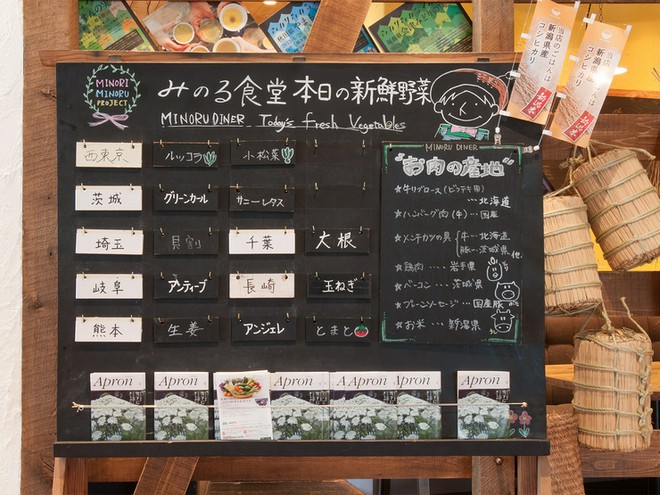 MINORI
MINORU
PROJECT
みのる食堂本日の新鮮野菜
MINORU DINER Today's Fresh Vegetables
西東京 ルッコラ 小松菜
茨城 グリーンカール サニーレタス
埼玉 貝割 千葉 大根
岐阜 アンディーブ 長崎 玉ねぎ
熊本 生姜 アンジェレ とまと
MINORU DINER
"お肉の産地"
★牛リグロース(ビフテキ用)
…北海道
★ハンバーグ肉(牛)…国産
★メンチカツの具 牛…北海道
豚…茨城県 他.
★鶏肉…岩手県
★ベーコン…茨城県
★プレーンソーセージ…国産豚
★お米…新潟県
当店のごはんは
新潟県産
コシヒカリ
新潟米
当店のごはんは
新潟県産
コシヒカリ
新潟米
Apron
Apron
Apron
Apron
Apron
Apron